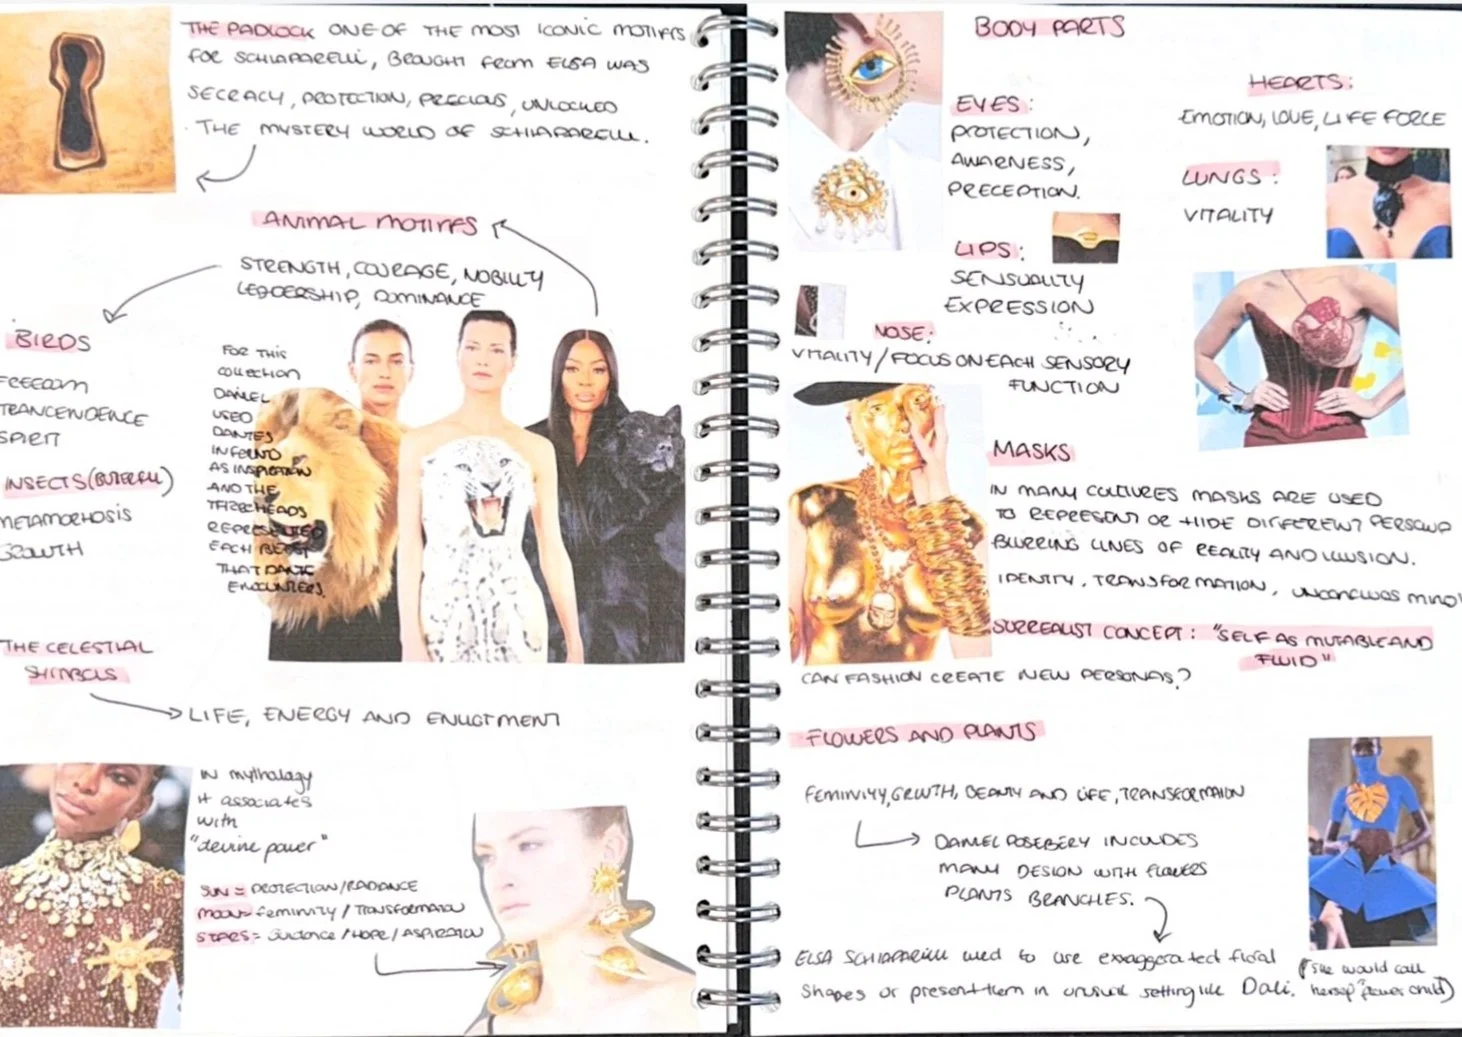 THE PADLOCK ONE OF THE MOST ICONIC MOTIFS
FOR SCHIAPARELLI, BROUGHT FROM ELSA WAS
SECRACY, PROTECTION, PRECIOUS, UNLOCKED
THE MYSTERY WORLD OF SCHIAPARELLI.
ANIMAL MOTIFFS
STRENGTH, COURAGE, NOBILITY
LEADERSHIP, DOMINANCE
BIRDS
FREEDOM
TRANCENDENCE
SPIRIT
INSECTS (BUTERFLY)
METAMORHOSIS
GROWTH
FOR THIS
COLLECTION
DANIEL
USED
DANTES
INFERNO
AS INSPIRATION
AND THE
THREE HEADS
REPRESENTED
EACH BEAST
THAT DANTE
ENCOUNTERS.
THE CELESTIAL
SYMBOLS
LIFE, ENERGY AND ENLIGTMENT
IN mythology
it associates
with
"devine power"
SUN = PROTECTION/RADIANCE
MOON = feminity / TRANSFORMATION
STARS = Guidance / HOPE / ASPIRATION
BODY PARTS
EYES:
PROTECTION,
AWARNESS,
PRECEPTION.
HEARTS:
EMOTION, LOVE, LIFE FORCE
LUNGS:
VITALITY
LIPS:
SENSUALITY
EXPRESSION
NOSE:
VITALITY / FOCUS ON EACH SENSORY
FUNCTION
MASKS
IN MANY CULTURES MASKS ARE USED
TO REPRESENT OR HIDE DIFFERENT PERSONA
BLURRING LINES OF REALITY AND ILLUSION.
IDENTITY, TRANSFORMATION, MIND
SURREALIST CONCEPT: "SELF AS MUTABLE AND
FLUID"
CAN FASHION CREATE NEW PERSONAS?
FLOWERS AND PLANTS
FEMINITY, GRWTH, BEAUTY AND LIFE, TRANSFORMATION
DANIEL ROSEBERY INCLUDES
MANY DESIGN WITH FLOWERS
PLANTS BRANCHES.
ELSA SCHIAPARELLI used to use exxaggerated floral
shapes or present them in unusual setting like Dali.
(She would call
herself "flower child")